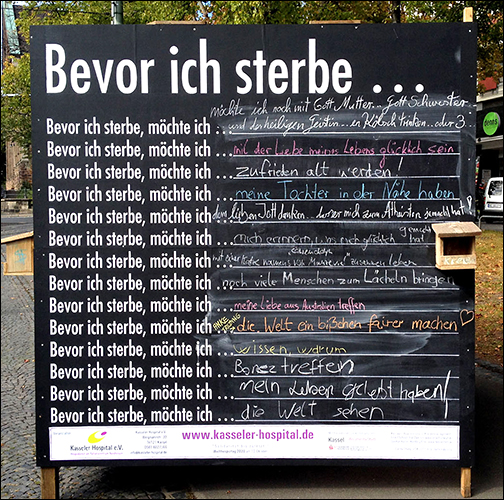 Bevor ich sterbe ...
möchte ich noch mit Gott Mutter... Gott Schwester
Bevor ich sterbe, möchte ich ... und der heiligen Geistin... ein Kölsch trinken.. oder 3
Bevor ich sterbe, möchte ich ... mit der Liebe meines Lebens glücklich sein
Bevor ich sterbe, möchte ich ... zufrieden alt werden!
Bevor ich sterbe, möchte ich ... meine Tochter in der Nähe haben
Bevor ich sterbe, möchte ich ... dem lieben Gott danken... mich zum Atheisten gemacht hat!
Bevor ich sterbe, möchte ich ... mich erinnern, was mich glücklich gemacht hat
Bevor ich sterbe, möchte ich ... mit einer Katze namens zusammen leben
Bevor ich sterbe, möchte ich ... noch viele Menschen zum Lächeln bringen
Bevor ich sterbe, möchte ich ... meine Liebe aus Australien treffen
Bevor ich sterbe, möchte ich ... die Welt ein bißchen fairer machen
Bevor ich sterbe, möchte ich ... wissen, warum
Bevor ich sterbe, möchte ich ... Bonez treffen
Bevor ich sterbe, möchte ich ... mein Leben gelebt haben!
Bevor ich sterbe, möchte ich ... die Welt sehen
Kasseler Hospital e.V.
www.kasseler-hospital.de
Kassel